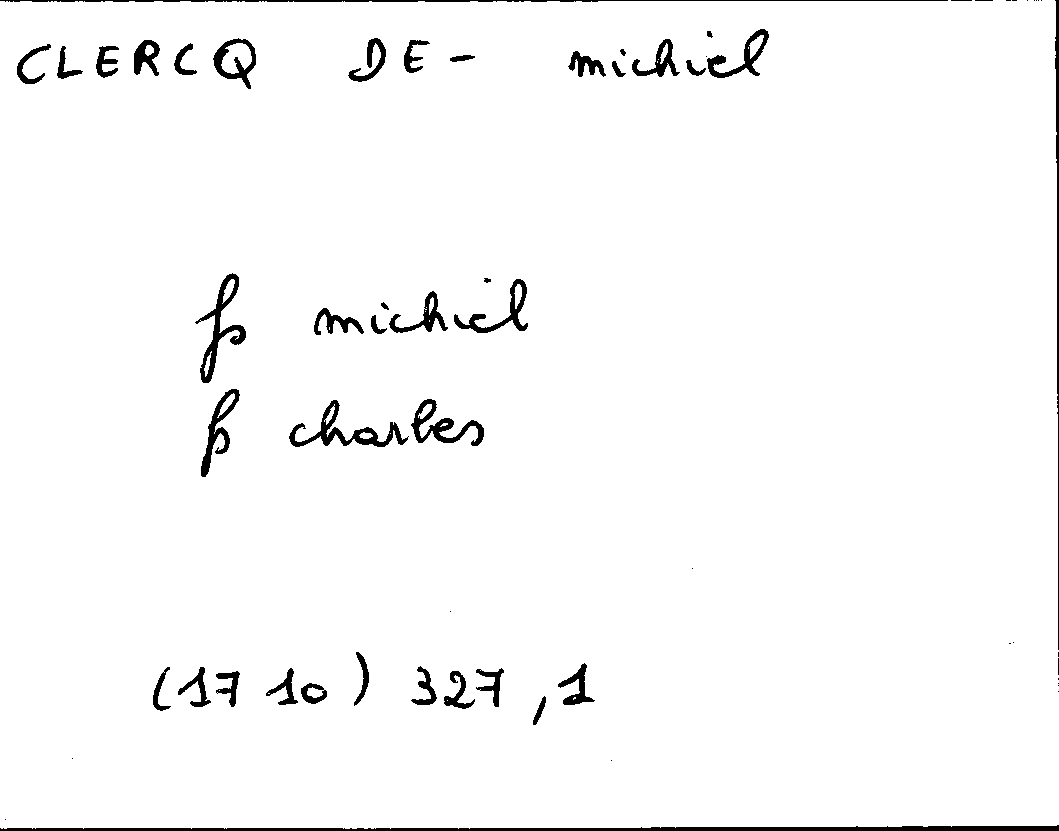 CLERCQ DE- michiel
fs michiel
fs charles
(1710) 327,1